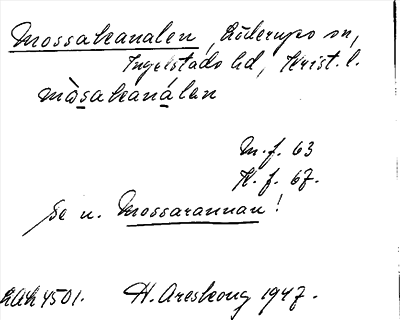 Mossakanalen, Löderups sn,
Ingelstads hd, Krist. l.
mòsakanálan
M. f. 63
K. f. 67.
Se u. Mossarännan!
LAL 4501. H. Areskoug 1947.